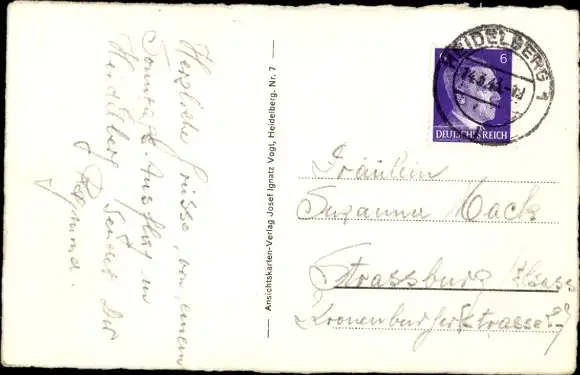 Herzliche Grüsse, von einem
Sonntags-Ausflug in
Heidelberg sendet Dir
Ansichtskarten-Verlag Josef Ignatz Vogt, Heidelberg. Nr. 7
HEIDELBERG 1
6
DEUTSCHES REICH
Fräulein
Suzanna Mack
Strassburg /Elsass
Kronenburgerstrasse